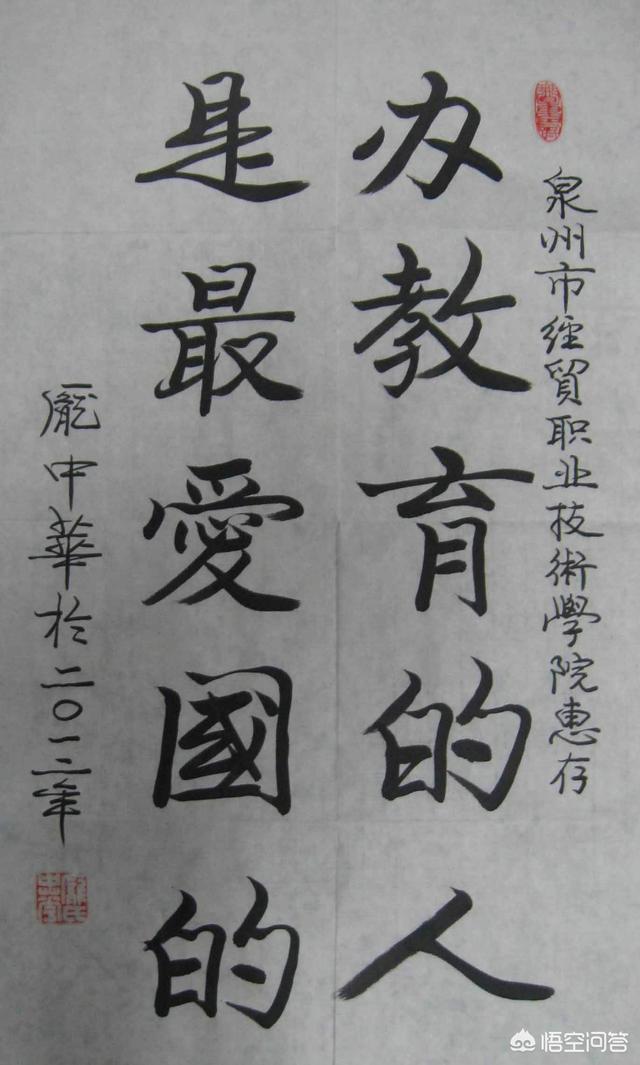 泉州市經貿职业技術學院惠存
办教育的人
是最愛國的
龐中華於二〇一二年
悟空问答